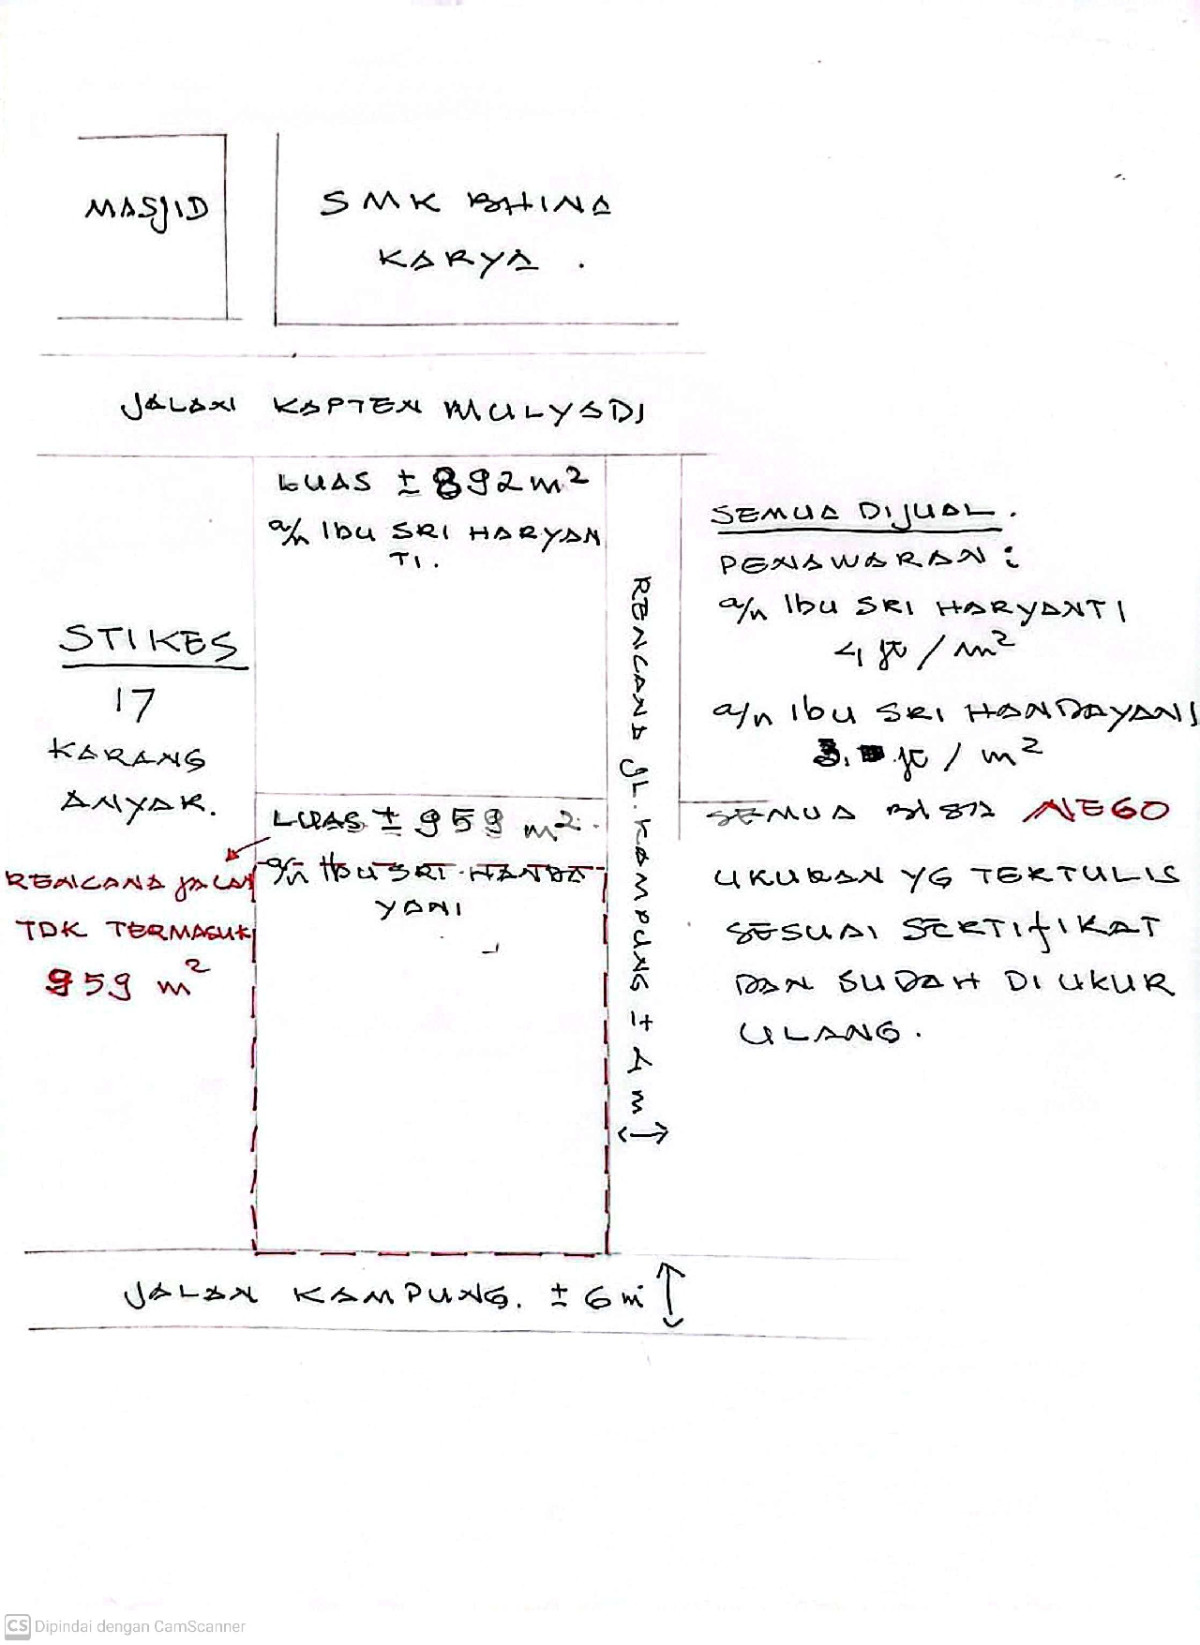 MASJID
SMK BHINA
KARYA.
JALAN KAPTEN MULYADI
LUAS ± 892 m²
a/n Ibu SRI HARYAN
TI.
STIKES
17
KARANG
ANYAR.
RENCANA JL. KAMPUNG ± 4 m
SEMUA DIJUAL.
PENAWARAN:
a/n Ibu SRI HARYANTI
4 jt / m²
a/n Ibu SRI HANDAYANI
3. jt / m²
SEMUA BISA NEGO
LUAS ± 959 m².
a/n Ibu SRI HANDA
YANI
RENCANA JALAN
TDK TERMASUK
959 m²
UKURAN YG TERTULIS
SESUAI SERTIFIKAT
DAN SUDAH DI UKUR
ULANG.
JALAN KAMPUNG. ± 6 m
CS Dipindai dengan CamScanner